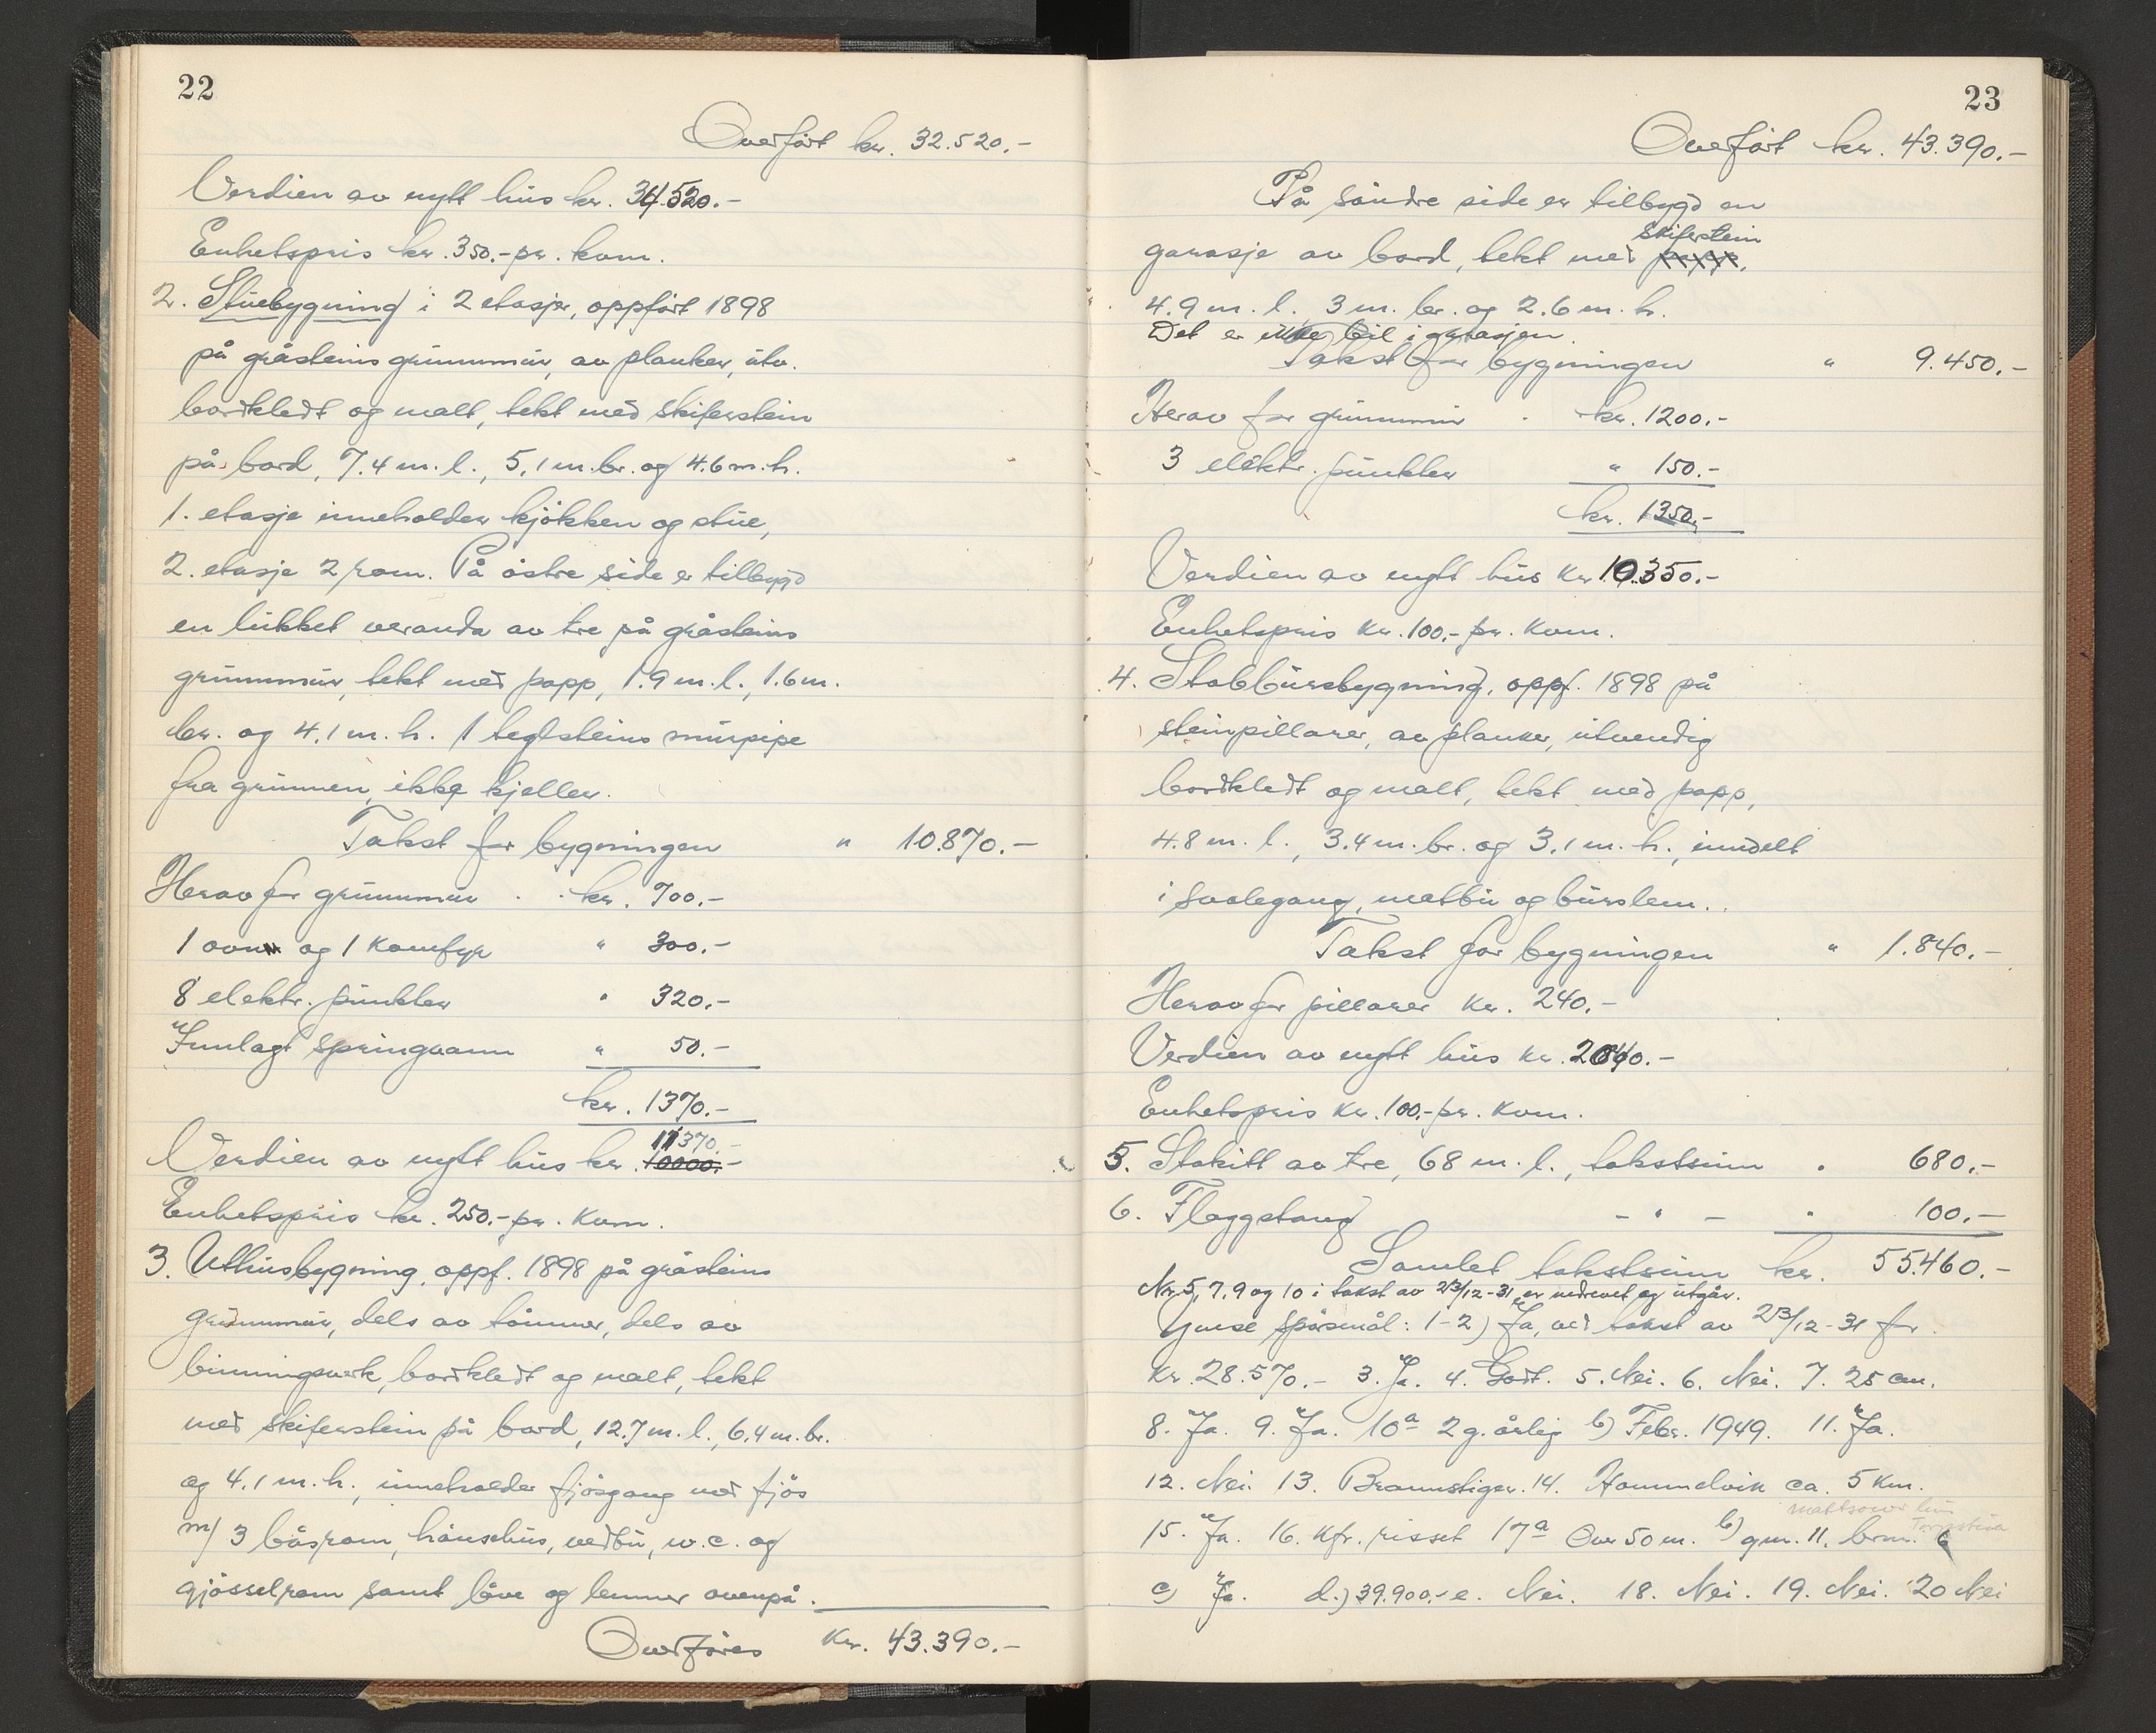 22
Overført kr. 32.520.-
Verdien av nytt hus kr. 34.520.-
Enhetspris kr. 350.- pr. kvm.
2. Stuebygning i 2 etasjer, oppført 1898
på gråsteins grunnmur, av planker, utv.
bordkledt og malt, tekt med skiferstein
på bord, 7.4 m. l., 5.1 m. br. og 4.6 m. h.
1. etasje inneholder kjøkken og stue,
2. etasje 2 rom. På østre side er tilbygd
en lukket veranda av tre på gråsteins
grunnmur, tekt med papp, 1.9 m. l., 1.6 m.
br. og 4.1 m. h. 1 teglsteins murpipe
fra grunnen, ikke kjeller.
Takst for bygningen " 10.870.-
Herav for grunnmur . . kr. 700.-
1 ovn og 1 komfyr " 300.-
8 elektr. punkter " 320.-
Innlagt springvann " 50.-
kr. 1370.-
11370.-
Verdien av nytt hus kr. 10000.-
Enhetspris kr. 250.- pr. kvm.
3. Uthusbygning, oppf. 1898 på gråsteins
grunnmur, dels av tømmer, dels av
binningsverk, bordkledt og malt, tekt
med skiferstein på bord, 12.7 m. l., 6.4 m. br.
og 4.1 m. h., inneholder fjøsgang med fjøs
m/ 3 båsrom, hønsehus, vedbu, w.c. og
gjødselrom samt låve og lemmer ovenpå.
Overføres kr. 43.390.-
23
Overført kr. 43.390.-
På søndre side er tilbygd en
skiferstein
garasje av bord, tekt med papp,
4.9 m. l., 3 m. br. og 2.6 m. h.
Det er ikke bil i garasjen.
Takst for bygningen " 9.450.-
Herav for grunnmur . kr. 1200.-
3 elektr. punkter " 150.-
kr. 1350.-
Verdien av nytt hus kr 10.350.-
Enhetspris kr. 100.- pr. kvm.
4. Stabbursbygning, oppf. 1898 på
steinpillarer, av planker, utvendig
bordkledt og malt, tekt med papp,
4.8 m. l., 3.4 m. br. og 3.1 m. h., inndelt
i svalegang, matbu og burslem.
Takst for bygningen " 1.840.-
Herav for pillarer kr. 240.-
Verdien av nytt hus kr. 2040.-
Enhetspris kr. 100.- pr. kvm.
5. Stakitt av tre, 68 m. l., takstsum " 680.-
6. Flaggstang - " - " 100.-
Samlet takstsum kr. 55.460.-
Nr. 5, 7, 9 og 10 i takst av 23/12-31 er nedrevet og utgår.
Ymse spørsmål: 1-2) Ja, ved takst av 23/12-31 for
kr. 28.570.- 3. Ja. 4. Godt. 5. Nei. 6. Nei. 7. 25 cm.
8. Ja. 9. Ja. 10a 2 g. årlig b) Febr. 1949. 11. Ja.
12. Nei. 13. Brannstiger. 14. Hommelvik ca. 5 km.
15. Ja. 16. Kfr. risset 17a Over 50 m. b) gnr. 11, brnr. 6
c) Ja. d.) 39.900.- e. Nei. 18. Nei. 19. Nei. 20 Nei